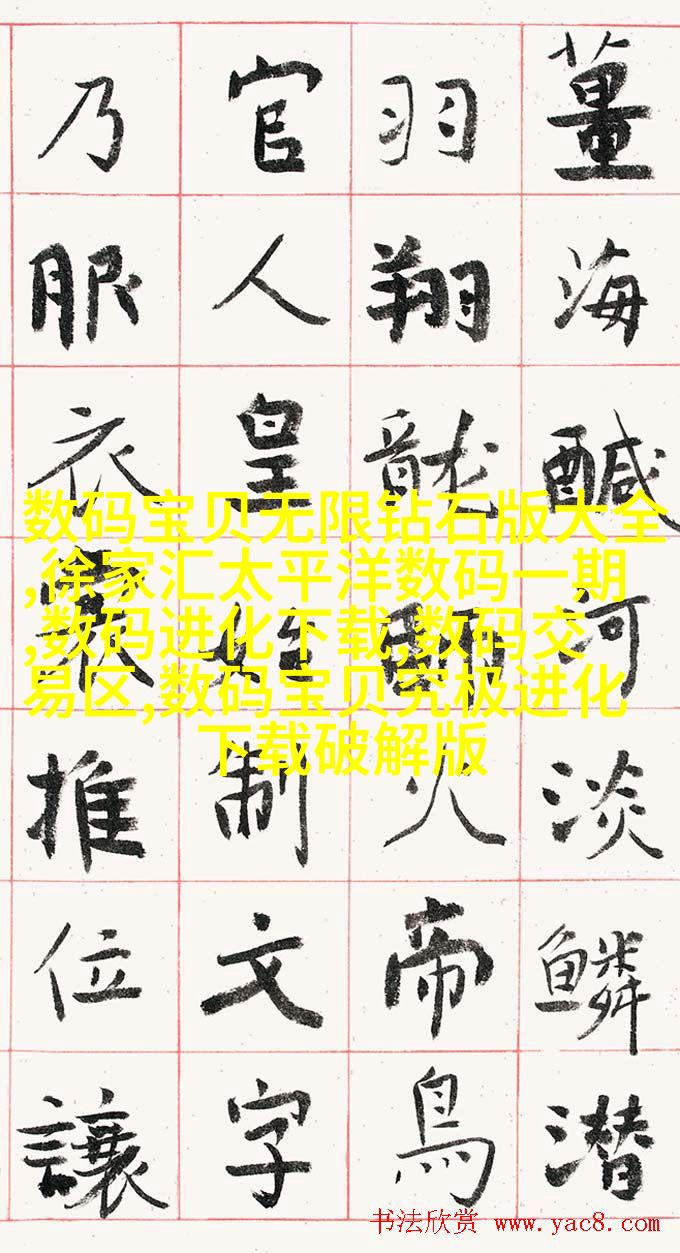 薑海鹹河淡鱗潛
羽翔龍師火帝鳥
官人皇始制文字
乃服衣裳推位讓
数码宝贝无限钻石版大全
,徐家汇太平洋数码一期
,数码进化下载,数码交
易区,数码宝贝究极进化
下载破解版
书法欣赏 www.yac8.com